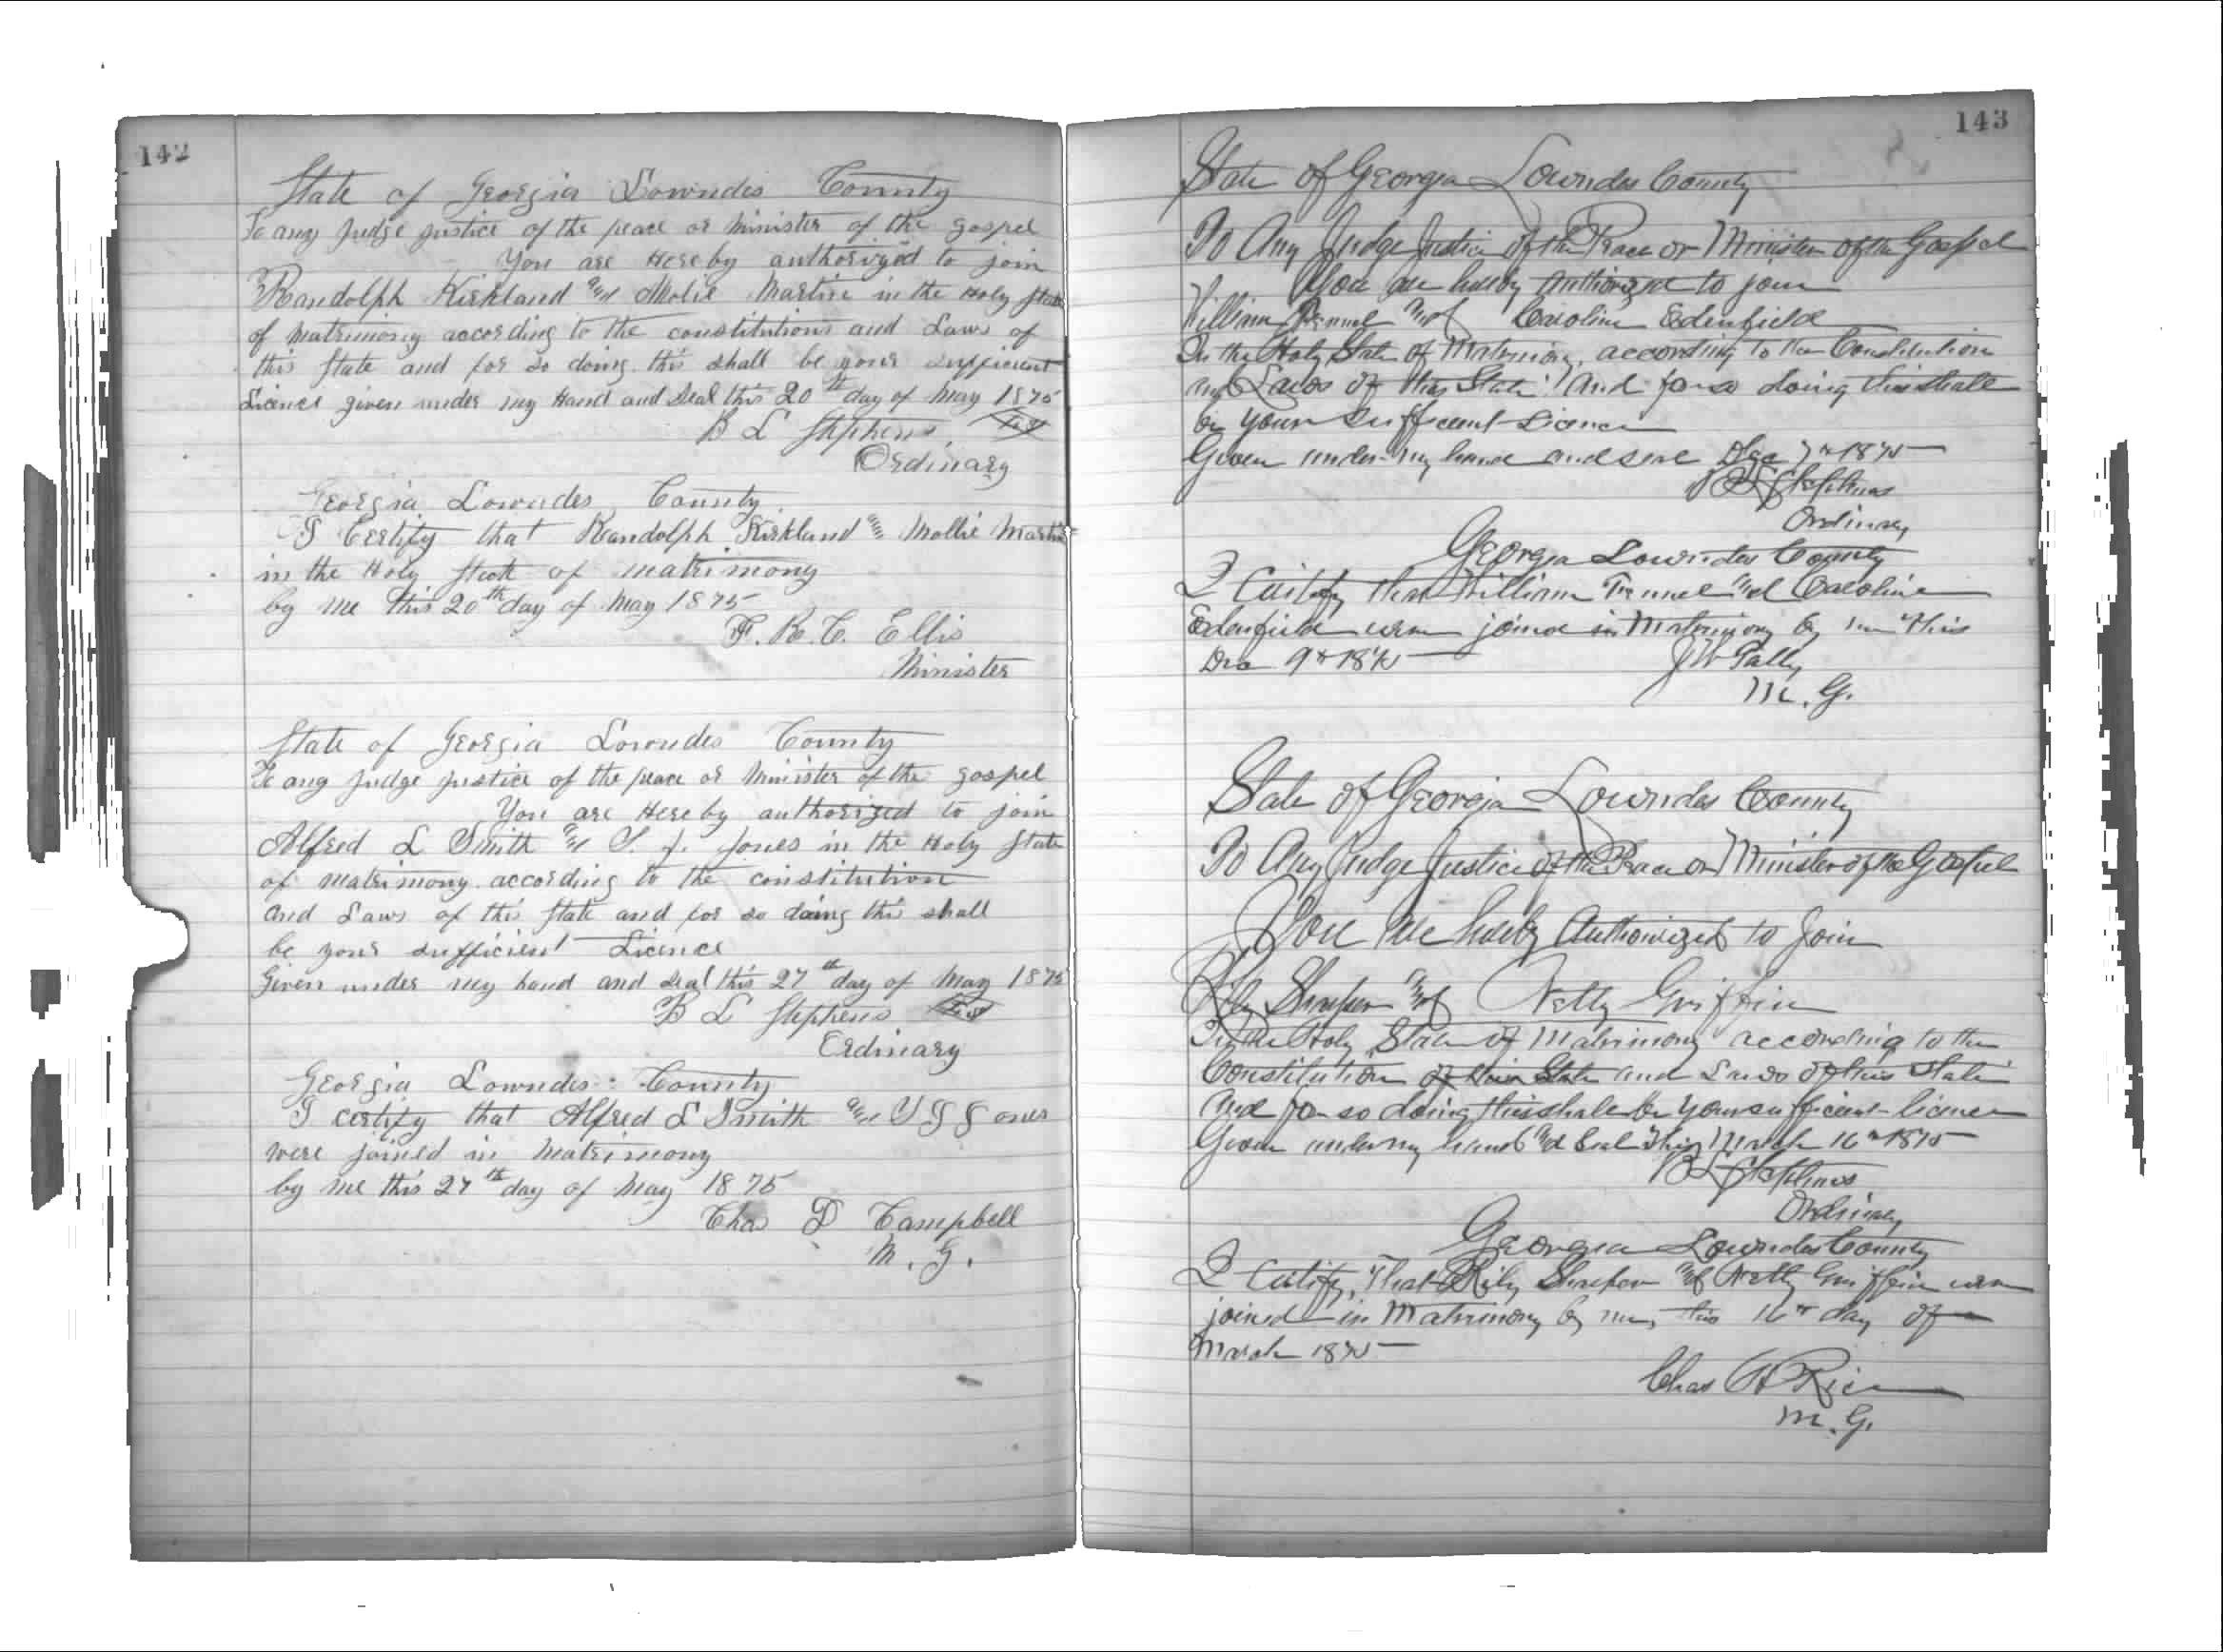 142
State of Georgia Lowndes County
To any Judge Justice of the peace or Minister of the gospel
You are Hereby authorized to join
Randolph Kirkland and Molie Martin in the Holy State
of Matrimony according to the constitutions and Laws of
this State and for so doing this shall be your sufficient
Licence given under my Hand and Seal this 20th day of May 1875
B L Stephens
Ordinary
Georgia Lowndes County
I Certify that Randolph Kirkland and Mollie Martin
in the Holy State of matrimony
by me this 20th day of May 1875
F. R. C. Ellis
Minister
State of Georgia Lowndes County
To any Judge Justice of the peace or Minister of the gospel
You are Hereby authorized to join
Alfred L Smith and S. J. Jones in the Holy State
of matrimony according to the constitution
and Laws of this State and for so doing this shall
be your sufficient Licence
Given under my hand and Seal this 27th day of May 1875
B L Stephens
Ordinary
Georgia Lowndes County
I certify that Alfred L Smith and Jones
were joined in Matrimony
by me this 27th day of May 1875
Chas D Campbell
M. G.
143
State of Georgia Lowndes County
To Any Judge Justice of the Peace or Minister of the Gospel
You are hereby authorized to join
William and Caroline Edenfield
In the Holy State of Matrimony, according to the Constitution
and Laws of this State And for so doing this shall
be your sufficient Licence
Given under my hand and seal Dec 7th 1875
B L Stephens
Ordinary
Georgia Lowndes County
I Certify that William and Caroline
Edenfield were joined in Matrimony by me this
Dec 9th 1875
J W
M. G.
State of Georgia Lowndes County
To Any Judge Justice of the Peace or Minister of the Gospel
You are hereby Authorized to Join
Rily Sharper and Netty Griffin
In the Holy State of Matrimony according to the
Constitution of this State and Laws of this State
And for so doing this shall be your sufficient licence
Given under my hand and Seal this March 16th 1875
B L Stephens
Ordinary
Georgia Lowndes County
I Certify, That Rily Sharper and Netty Griffin were
joined in Matrimony by me, this 16th day of
March 1875
Chas A Rice
M. G.